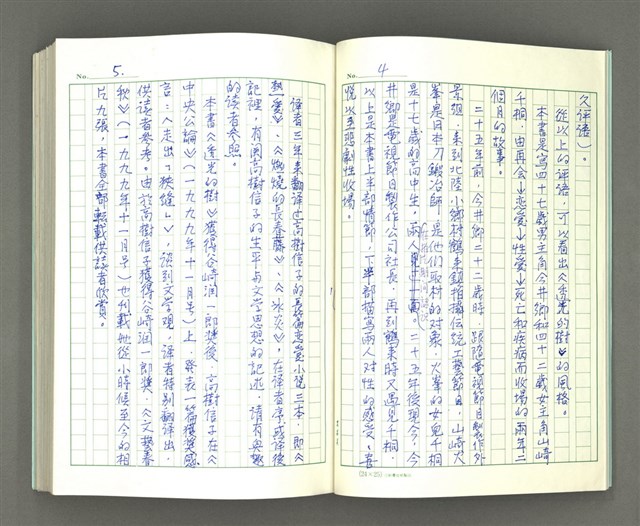 No. 4
久評語)。
從以上的評語,可以看出《透光的樹》的風格。
本書是寫四十七歲男主角今井鄉和四十二歲女主角山崎
千桐,由再会→恋愛→性愛→死亡和疾病而收場的兩年二
個月的故事。
二十五年前,今井鄉二十二歲時,跟隨電視節目製作外
景組,來到北陸小鄉村鶴来鎮拍攝伝統工藝節目,山崎火
峯是日本刀鍛冶師,是他們取材的对象,火峯的女兒千桐
是十七歲的高中生,兩人見面。二十五年後現今,今
井鄉是電視節目製作公司社長,再到鶴来時又遇見千桐,
以上是本書上半部情節,下半部描寫兩人对性的感受,喜
悅以至悲劇性收場。
(24×25)
No. 5.
譯者三年来翻譯过高樹信子的長篇恋愛小說三本,即《
熱愛》、《燃燒的長春藤》、《冰炎》,在譯者序或譯後
記裡,有関高樹信子的生平与文学思想的記述,請有興趣
的讀者参照。
本書《透光的樹》獲得谷崎潤一郎獎後,高樹信子在《
中央公論》(一九九九年十一月号)上,發表一篇獲獎感
言:《走出「狹縫」》,談到文学觀,譯者特別翻譯出,
供讀者参考。由於高樹信子獲得谷崎潤一郎獎,《文藝春
秋》(一九九九年十一月号)也刊載她從小時候至今的相
片九張,本書全部転載供讀者欣賞。